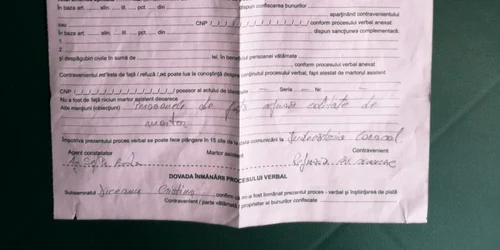 În baza art. ..... alin. ..... lit. ..... pct. ..... din ..... dispun confiscarea bunurilor .....
..... aparținând contravenientului
sau ..... CNP /_/_/_/_/_/_/_/_/_/_/_/_/_/ conform procesului verbal anexat
În baza art. ..... alin. ..... lit. ..... pct. ..... din ..... dispun sancțiunea complementară:
1
2
și despăgubiri civile în sumă de ..... lei, în beneficiul persoanei vătămate
....., conform procesului verbal anexat
Contravenientul este de față / refuză / poate lua la cunoștință despre conținutul procesului verbal, fapt atestat de martorul asistent
CNP /_/_/_/_/_/_/_/_/_/_/_/_/_/ posesor al actului de identitate — Seria — Nr. —
Nu a fost de față niciun martor asistent deoarece persoanele de față refuză calitatea de
Alte mențiuni (obiecțiuni) martor
Împotriva prezentului proces verbal se poate face plângere în 15 zile de la data comunicării la Judecătoria Caracal
Agent constatator Martor asistent Contravenient
Refuză să semneze
DOVADA ÎNMÂNĂRII PROCESULUI VERBAL
Subsemnatul Diceanu Cristina, confirm că mi-a fost înmânat prezentul proces - verbal și înștiințarea de plată
Contravenient / parte vătămată / proprietar al bunurilor confiscate